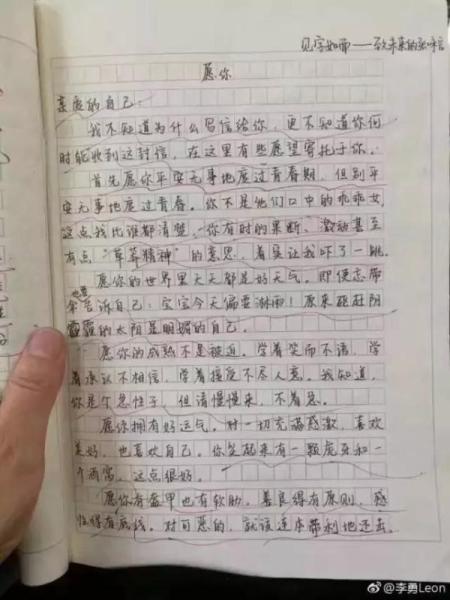 见字如面——致未来的
愿你
亲爱的自己：
我不知道为什么写信给你，更不知道你何
时能收到这封信，在这里有些愿望寄托于你。
首先愿你平安无事地度过青春期，但别平
安无事地度过青春。你不是他们口中的乖乖女，
这点我比谁都清楚，你有时的果断、激动甚至
有点“草莽精神”的意思，着实让我吓了一跳。
愿你的世界里天天都是好天气。即便忘带
伞也要告诉自己：宝宝今天偏要淋雨！原来砸赶阴
霾的太阳是明媚的自己。
愿你的成熟不是被迫。学着笑而不语，学
着承认不相信，学着接受不尽人意。我知道，
你是个急性子，但请慢慢来，不着急。
愿你拥有好运气。对一切充满感激，喜欢
美好，也喜欢自己。你笑起来有一颗虎牙和一
个酒窝，这点很好。
愿你有盔甲也有软肋。善良得有原则，感
性得有底线。对可恶的，就该连本带利地还击。
@李勇Leon